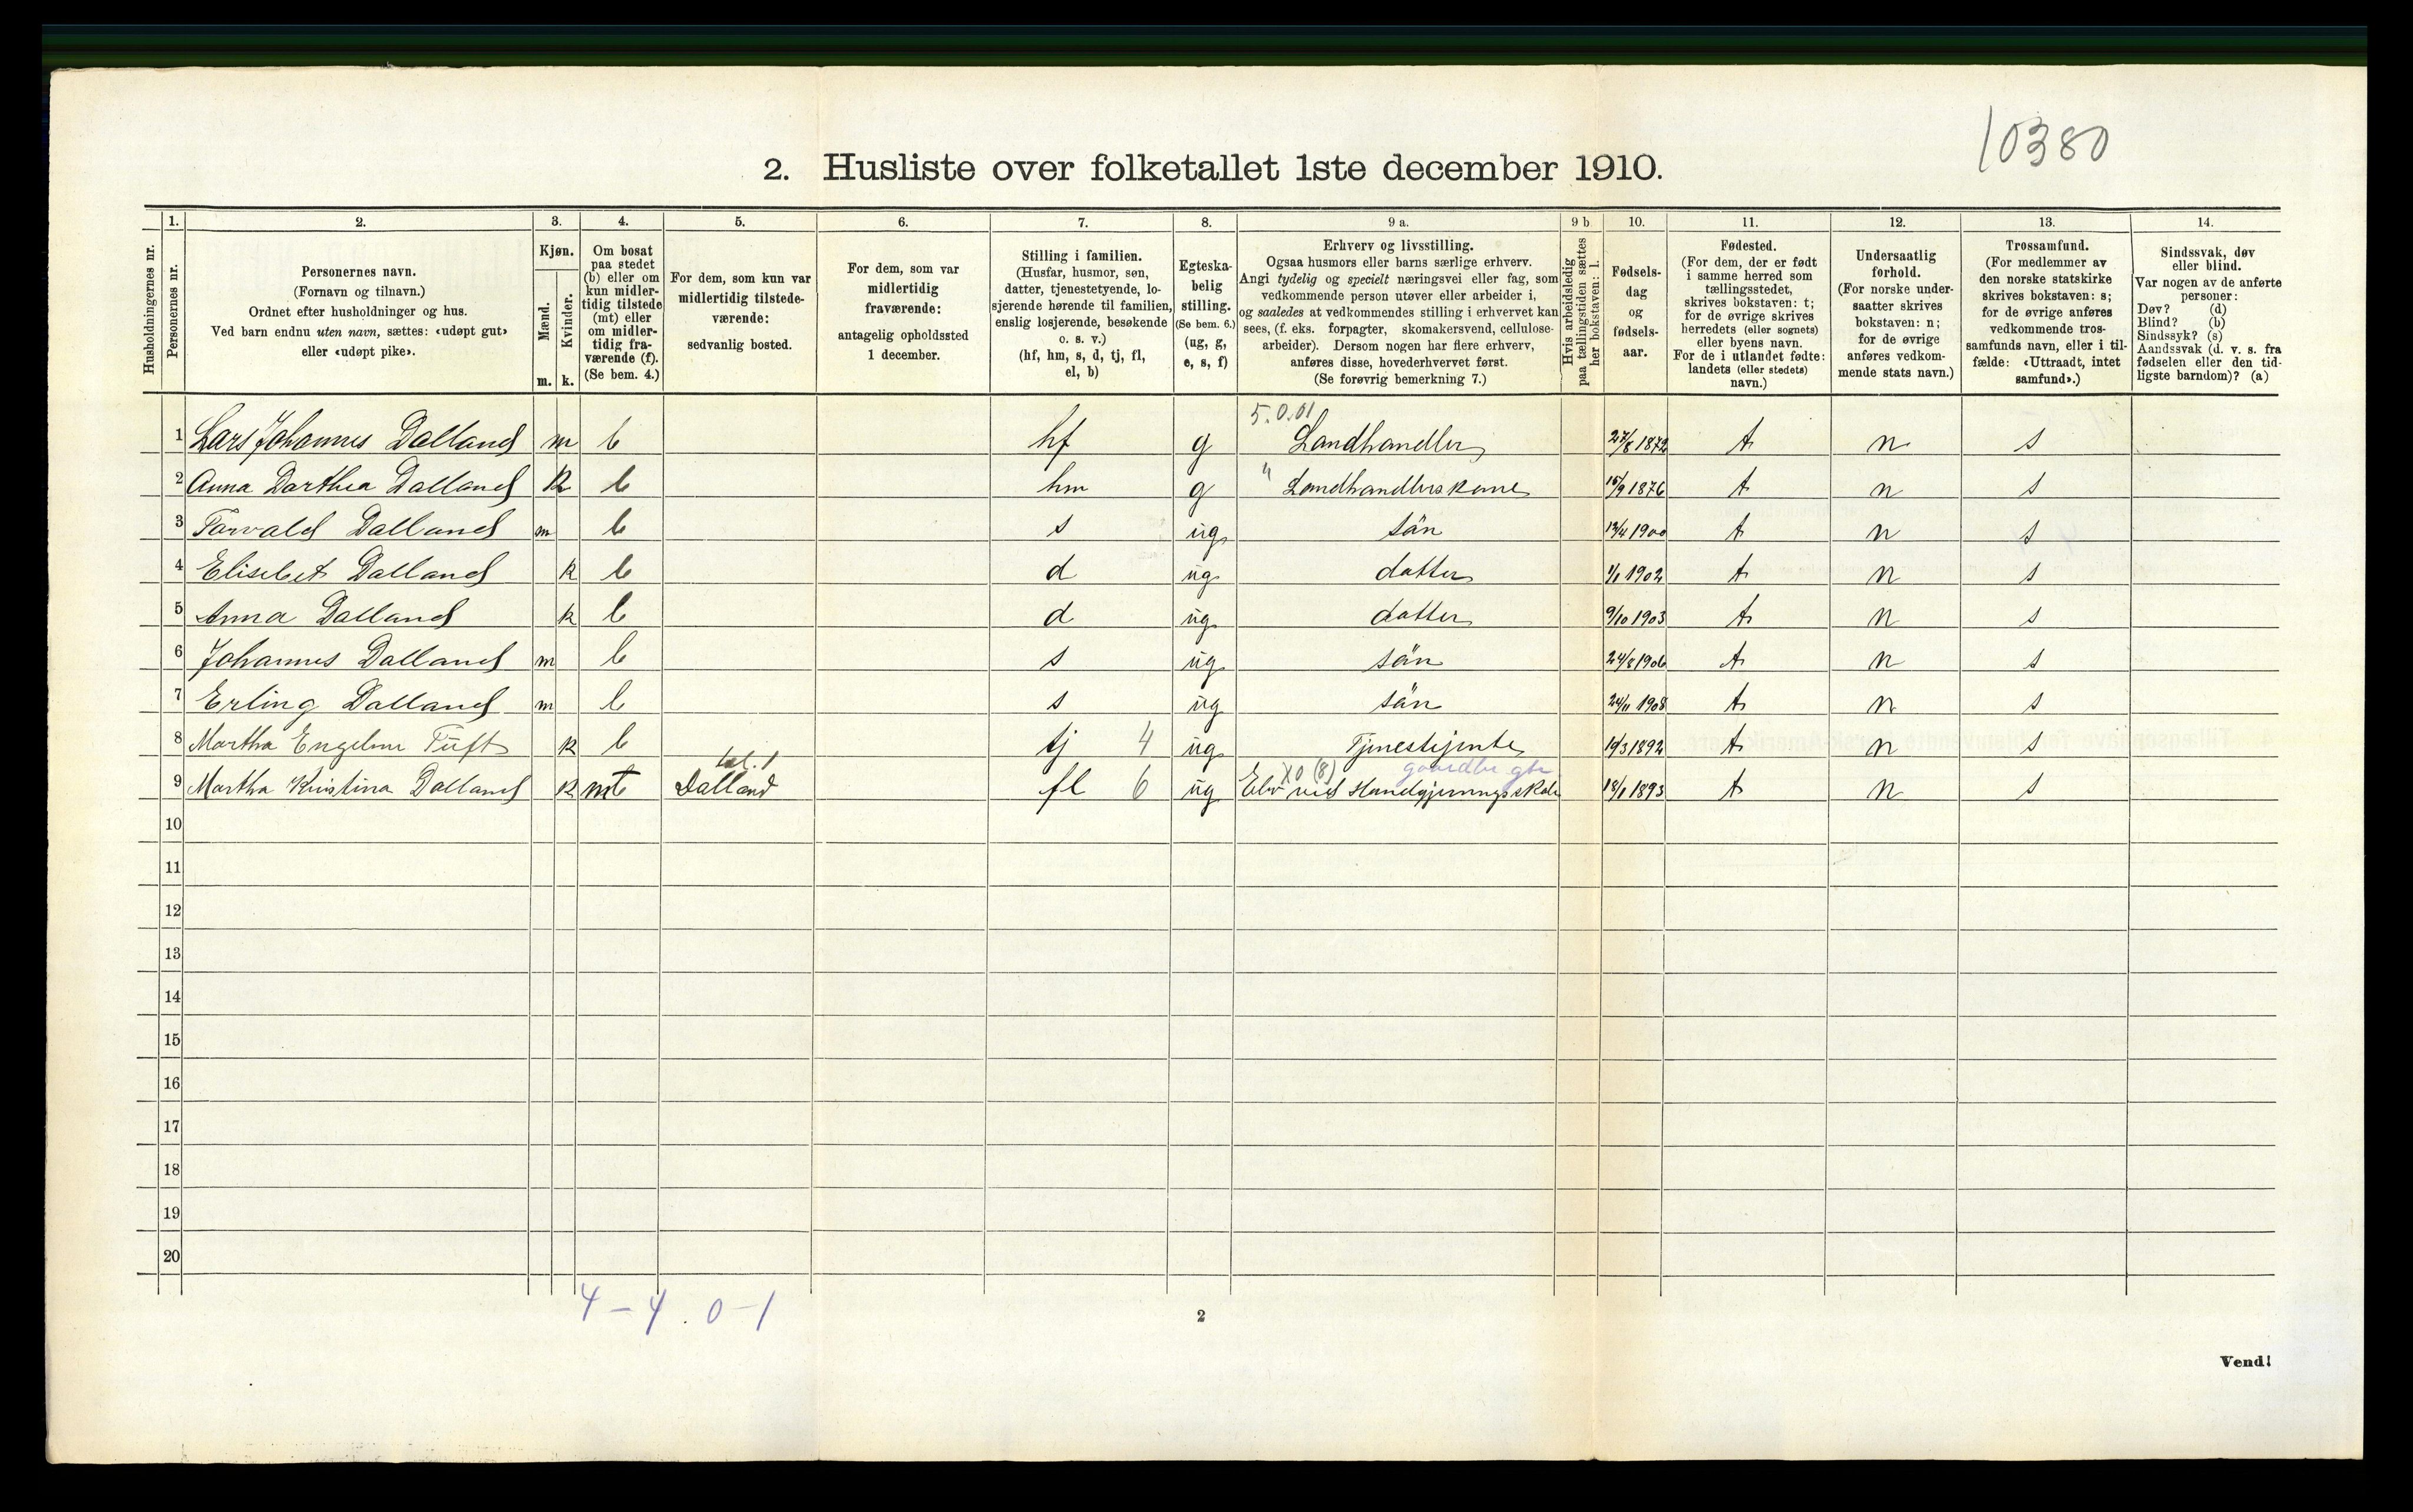 10380
2. Husliste over folketallet 1ste december 1910.
Husholdningernes nr.
1. Personernes nr.
2. Personernes navn.
(Fornavn og tilnavn.)
Ordnet efter husholdninger og hus.
Ved barn endnu uten navn, sættes: «udøpt gut»
eller «udøpt pike».
3. Kjøn.
Mænd. m.
Kvinder. k.
4. Om bosat
paa stedet
(b) eller om
kun midler-
tidig tilstede
(mt) eller
om midler-
tidig fra-
værende (f).
(Se bem. 4.)
5. For dem, som kun var
midlertidig tilstede-
værende:
sedvanlig bosted.
6. For dem, som var
midlertidig
fraværende:
antagelig opholdssted
1 december.
7. Stilling i familien.
(Husfar, husmor, søn,
datter, tjenestetyende, lo-
sjerende hørende til familien,
enslig losjerende, besøkende
o. s. v.)
(hf, hm, s, d, tj, fl,
el, b)
8. Egteska-
belig
stilling.
(Se bem. 6.)
(ug, g,
e, s, f)
9 a. Erhverv og livsstilling.
Ogsaa husmors eller barns særlige erhverv.
Angi tydelig og specielt næringsvei eller fag, som
vedkommende person utøver eller arbeider i,
og saaledes at vedkommendes stilling i erhvervet kan
sees, (f. eks. forpagter, skomakersvend, cellulose-
arbeider). Dersom nogen har flere erhverv,
anføres disse, hovederhvervet først.
(Se forøvrig bemerkning 7.)
9 b Hvis arbeidsledig
paa tællingstiden sættes
her bokstaven: l.
10. Fødsels-
dag
og
fødsels-
aar.
11. Fødested.
(For dem, der er født
i samme herred som
tællingsstedet,
skrives bokstaven: t;
for de øvrige skrives
herredets (eller sognets)
eller byens navn.
For de i utlandet fødte:
landets (eller stedets)
navn.)
12. Undersaatlig
forhold.
(For norske under-
saatter skrives
bokstaven: n;
for de øvrige
anføres vedkom-
mende stats navn.)
13. Trossamfund.
(For medlemmer av
den norske statskirke
skrives bokstaven: s;
for de øvrige anføres
vedkommende tros-
samfunds navn, eller i til-
fælde: «Uttraadt, intet
samfund».)
14. Sindssvak, døv
eller blind.
Var nogen av de anførte
personer:
Døv? (d)
Blind? (b)
Sindssyk? (s)
Aandssvak (d. v. s. fra
fødselen eller den tid-
ligste barndom)? (a)
5.0.01
1 Lars Johannes Dalland m b hf g Landhandler 27/8 1872 t n s
2 Anna Dorthea Dalland k b hm g " Landhandlerskone 15/9 1876 t n s
3 Torvald Dalland m b s ug sön 13/4 1900 t n s
4 Elisebet Dalland k b d ug datter 1/1 1902 t n s
5 Anna Dalland k b d ug datter 9/10 1903 t n s
6 Johannes Dalland m b s ug sön 24/8 1906 t n s
7 Erling Dalland m b s ug sön 24/11 1908 t n s
8 Martha Engeline Tuft k b tj 4 ug Tjenestejente 19/3 1892 t n s
9 Martha Kristina Dalland k mt Dalland fl 6 ug Elev ved Handgjerningsskole 18/1 1893 t n s
10
11
12
13
14
15
16
17
18
19
20
4 - 4 . 0 - 1
2
Vend!